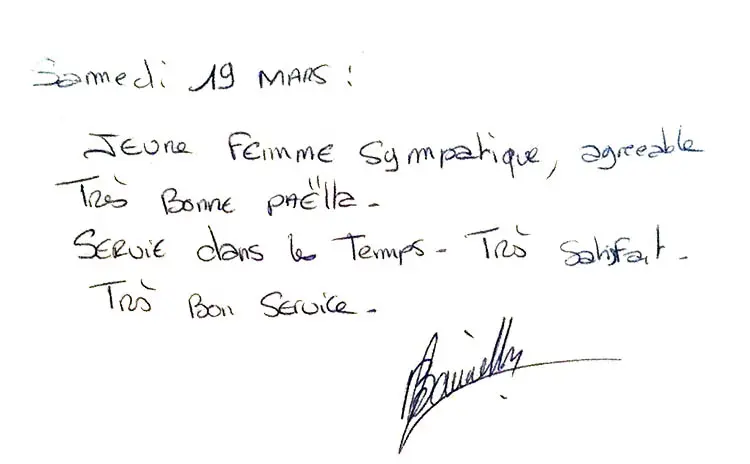 Samedi 19 MARS :
JEUNE FEMME Sympatique, agreeable
Très BONNE PAËlla -
SERVIE dans le Temps - Très Satisfait -
Très Bon SERVICE -